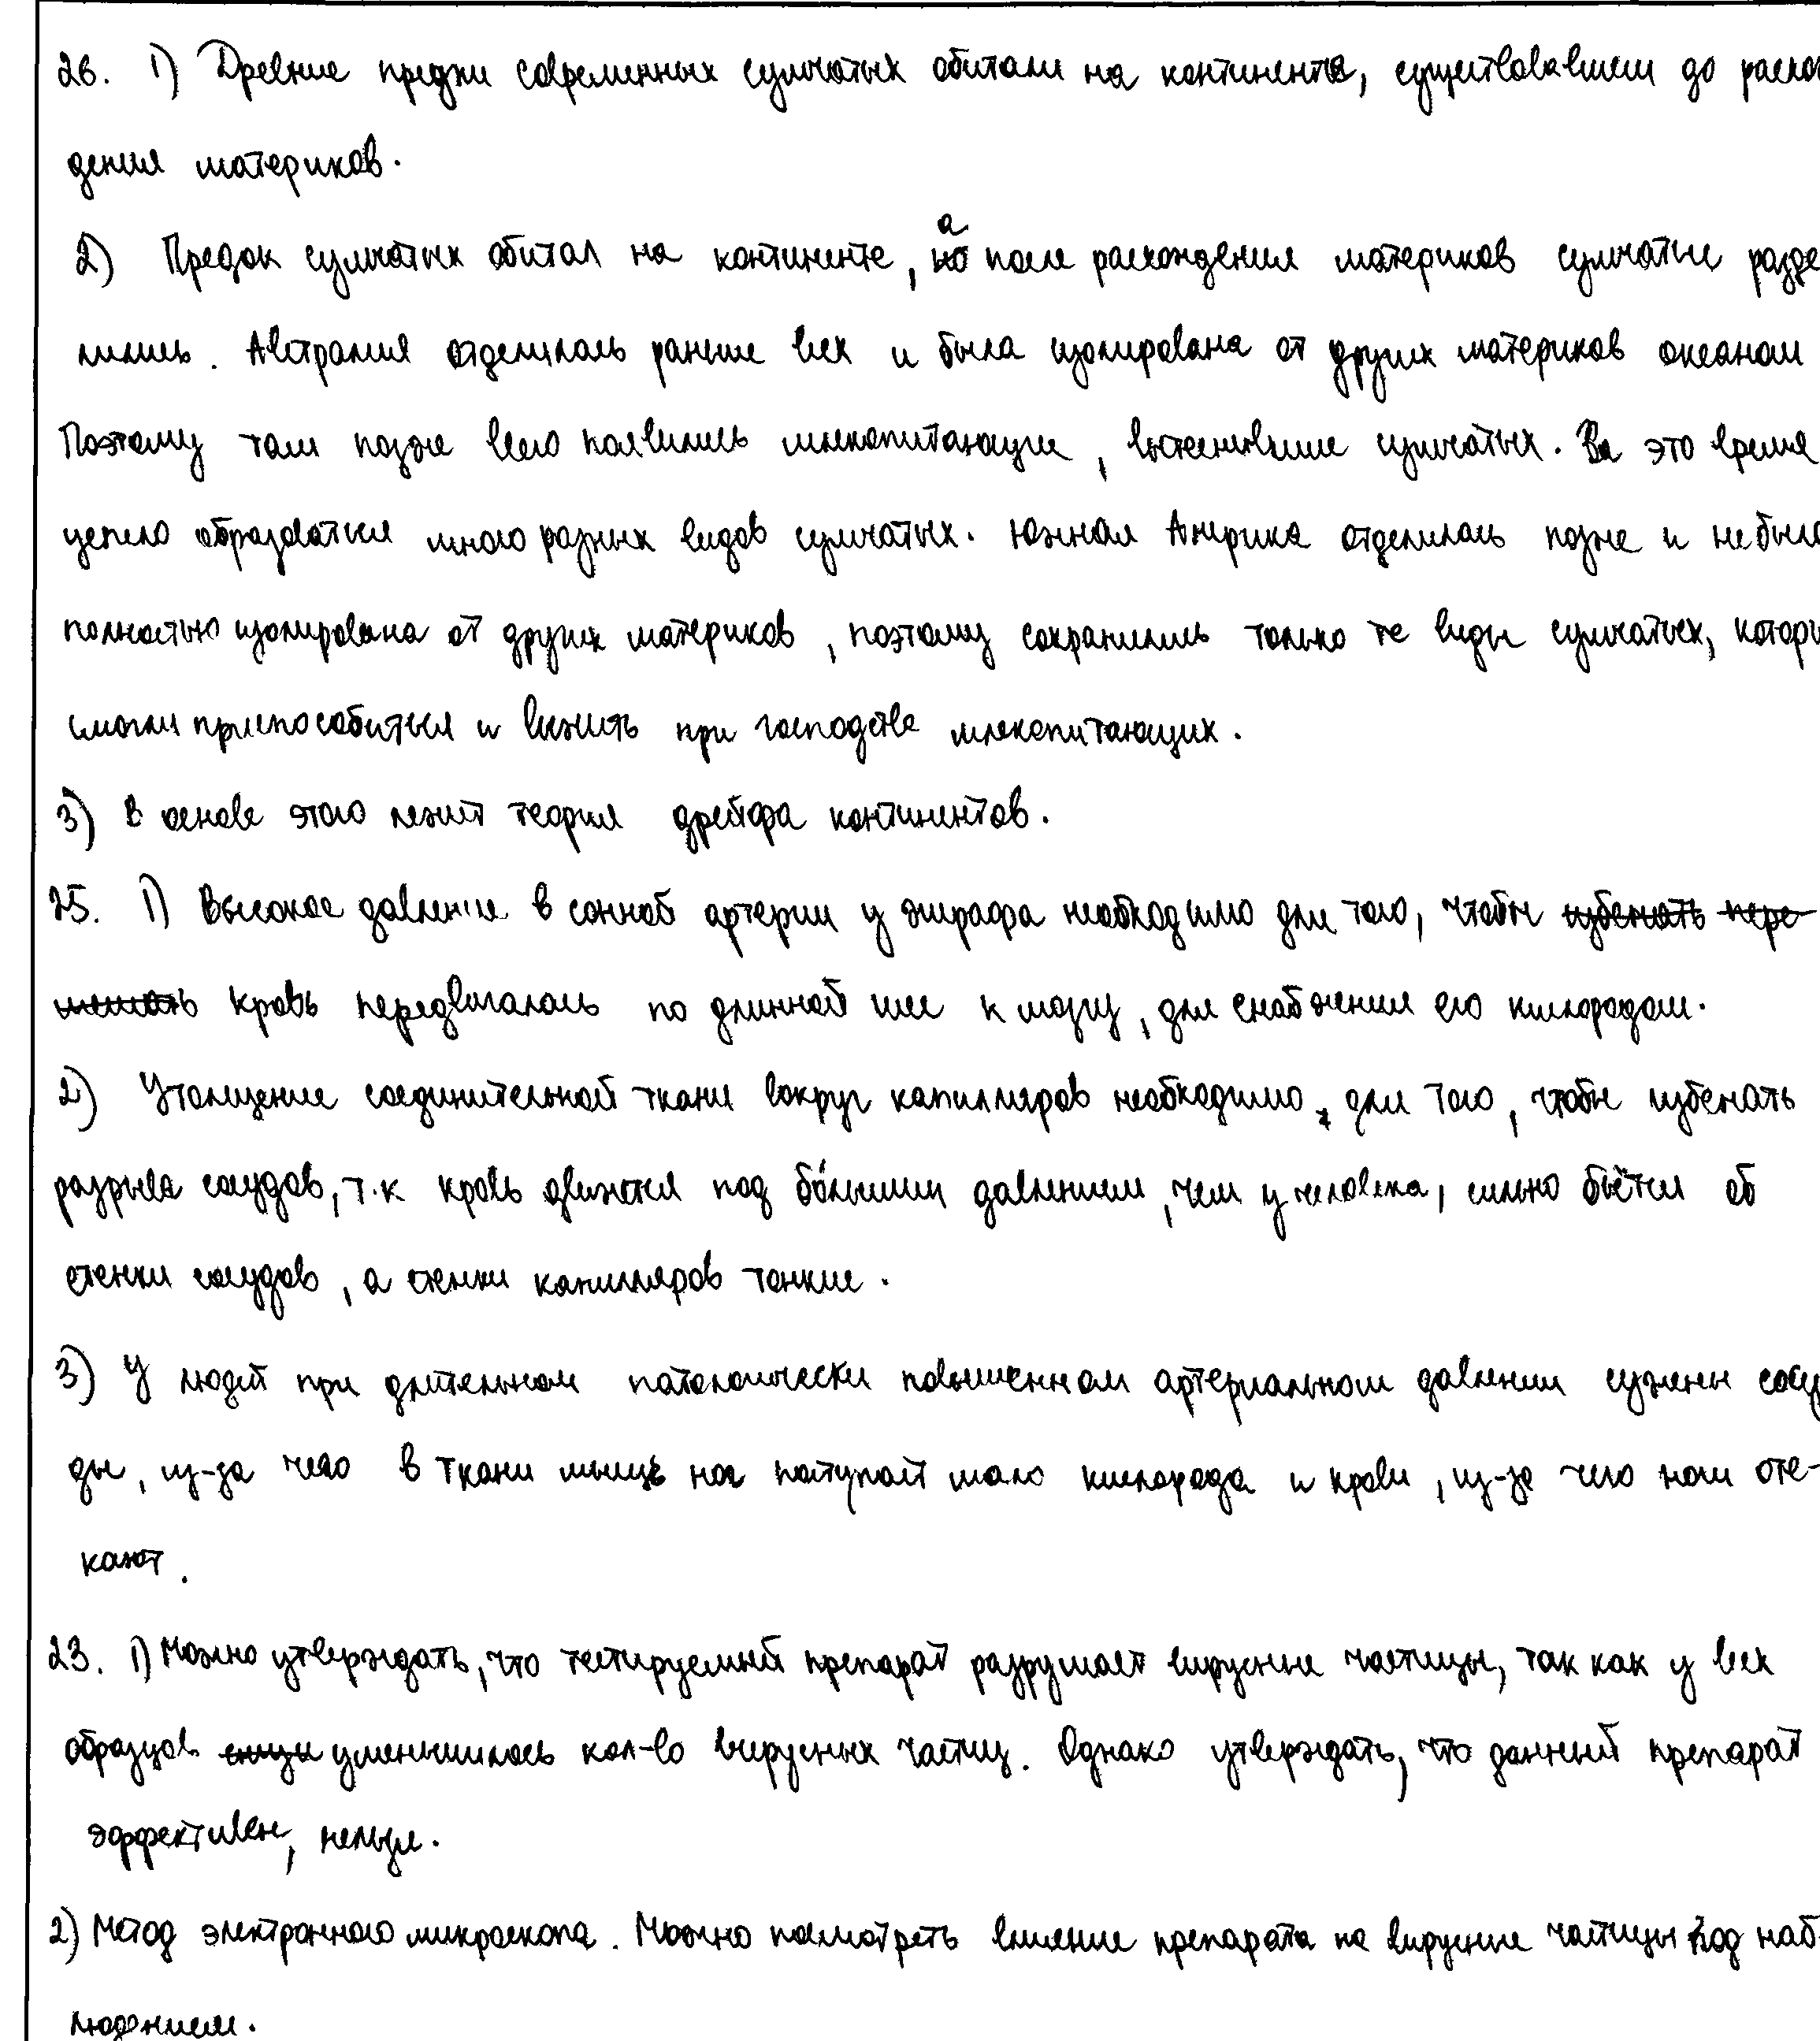 26. 1) Древние предки современных сумчатых обитали на континенте, существовавшем до расхож
дения материков.
2) Предок сумчатых обитал на континенте, а после расхождения материков сумчатые разде
лились. Австралия отделилась раньше всех и была изолирована от других материков океаном
Поэтому там позже всего появились млекопитающие, вытеснившие сумчатых. За это время
успело образоваться много разных видов сумчатых. Южная Америка отделилась позже и не была
полностью изолирована от других материков, поэтому сохранились только те виды сумчатых, которы
смогли приспособиться и выжить при господстве млекопитающих.
3) В основе этого лежит теория дрейфа континентов.
25. 1) Высокое давление в сонной артерии у жирафа необходимо для того, чтобы избежать пере
мешать кровь передвигалась по длинной шее к мозгу, для снабжения его кислородом.
2) Утолщение соединительной ткани вокруг капилляров необходимо, для того, чтобы избежать
разрыва сосудов, т.к кровь движется под бо́льшим давлением, чем у человека, сильно бьётся об
стенки сосудов, а стенки капилляров тонкие.
3) У людей при длительном патологически повышенном артериальном давлении сужены сосу
ды, из-за чего в ткани мышц ног поступает мало кислорода и крови, из-за чего ноги оте-
кают.
23. 1) Можно утверждать, что тестируемый препарат разрушает вирусные частицы, так как у всех
образцов уменьшилось кол-во вирусных частиц. Однако утверждать, что данный препарат
эффективен, нельзя.
2) Метод электронного микроскопа. Можно посмотреть влияние препарата на вирусные частицы под наб
людением.